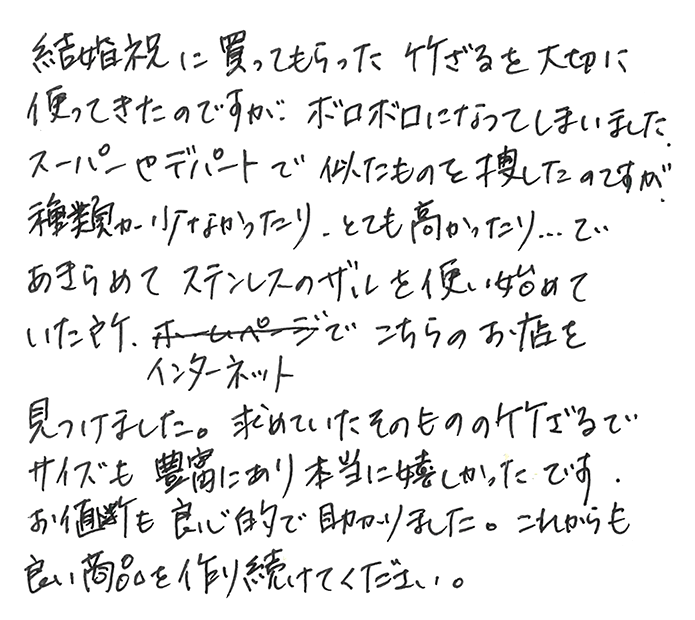 結婚祝に買ってもらった竹ざるを大切に
使ってきたのですが、ボロボロになってしまいました。
スーパーやデパートで似たものを捜したのですが、
種類が少なかったり、とても高かったり…で
あきらめてステンレスのザルを使い始めて
いた所、ホームページで こちらのお店を
インターネット
見つけました。求めていたそのものの竹ざるで
サイズも豊富にあり本当に嬉しかったです。
お値断も良心的で助かりました。これからも
良い商品を作り続けてください。